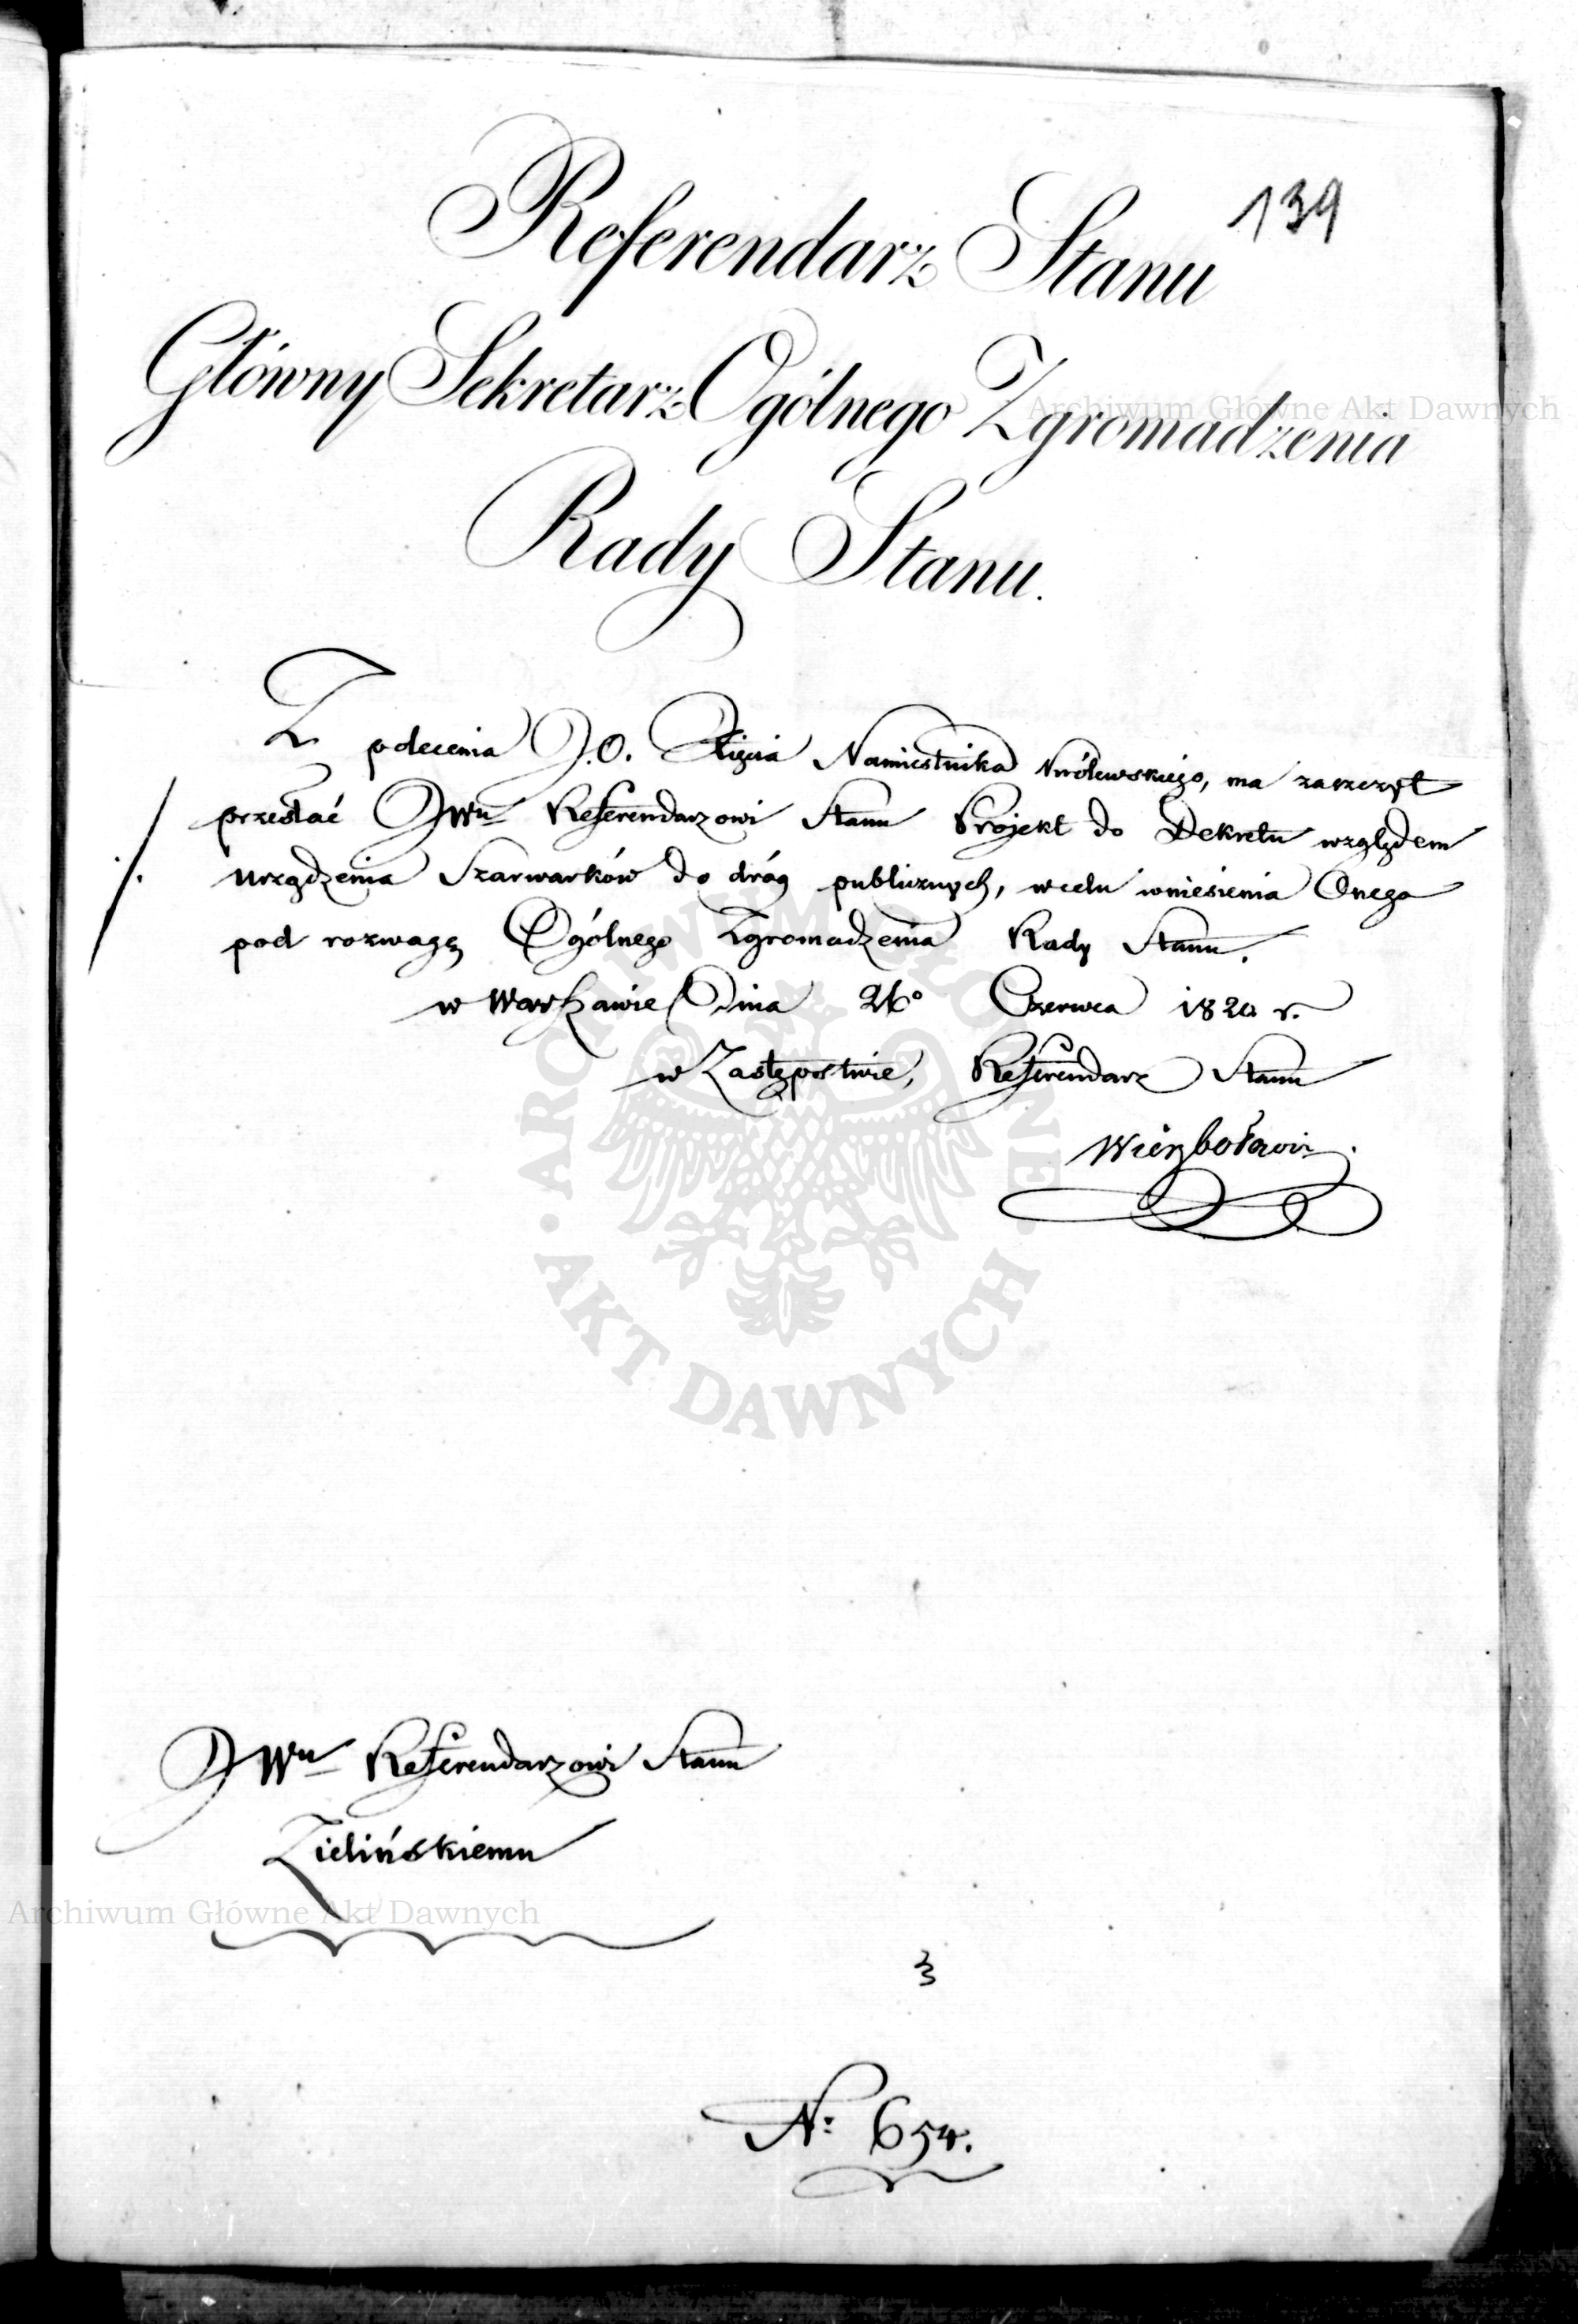 139
Referendarz Stanu
Główny Sekretarz Ogólnego Zgromadzenia
Rady Stanu.
Z polecenia J. O. Xięcia Namiestnika Królewskiego, ma zaszczyt
przesłać JWu Referendarzowi Stanu Projekt do Dekretu względem
urządzenia Szarwarków do dróg publicznych, w celu wniesienia Onego
pod rozwagę Ogólnego Zgromadzenia Rady Stanu.
w Warszawie Dnia Czerwca 1820 r.
w Zastępstwie, Referendarz Stanu
Wierzbołowicz.
JWu Referendarzowi Stanu
Zielińskiemu
3
N: 654.
Archiwum Główne Akt Dawnych
Archiwum Główne Akt Dawnych
ARCHIWUM GŁÓWNE · AKT DAWNYCH ·